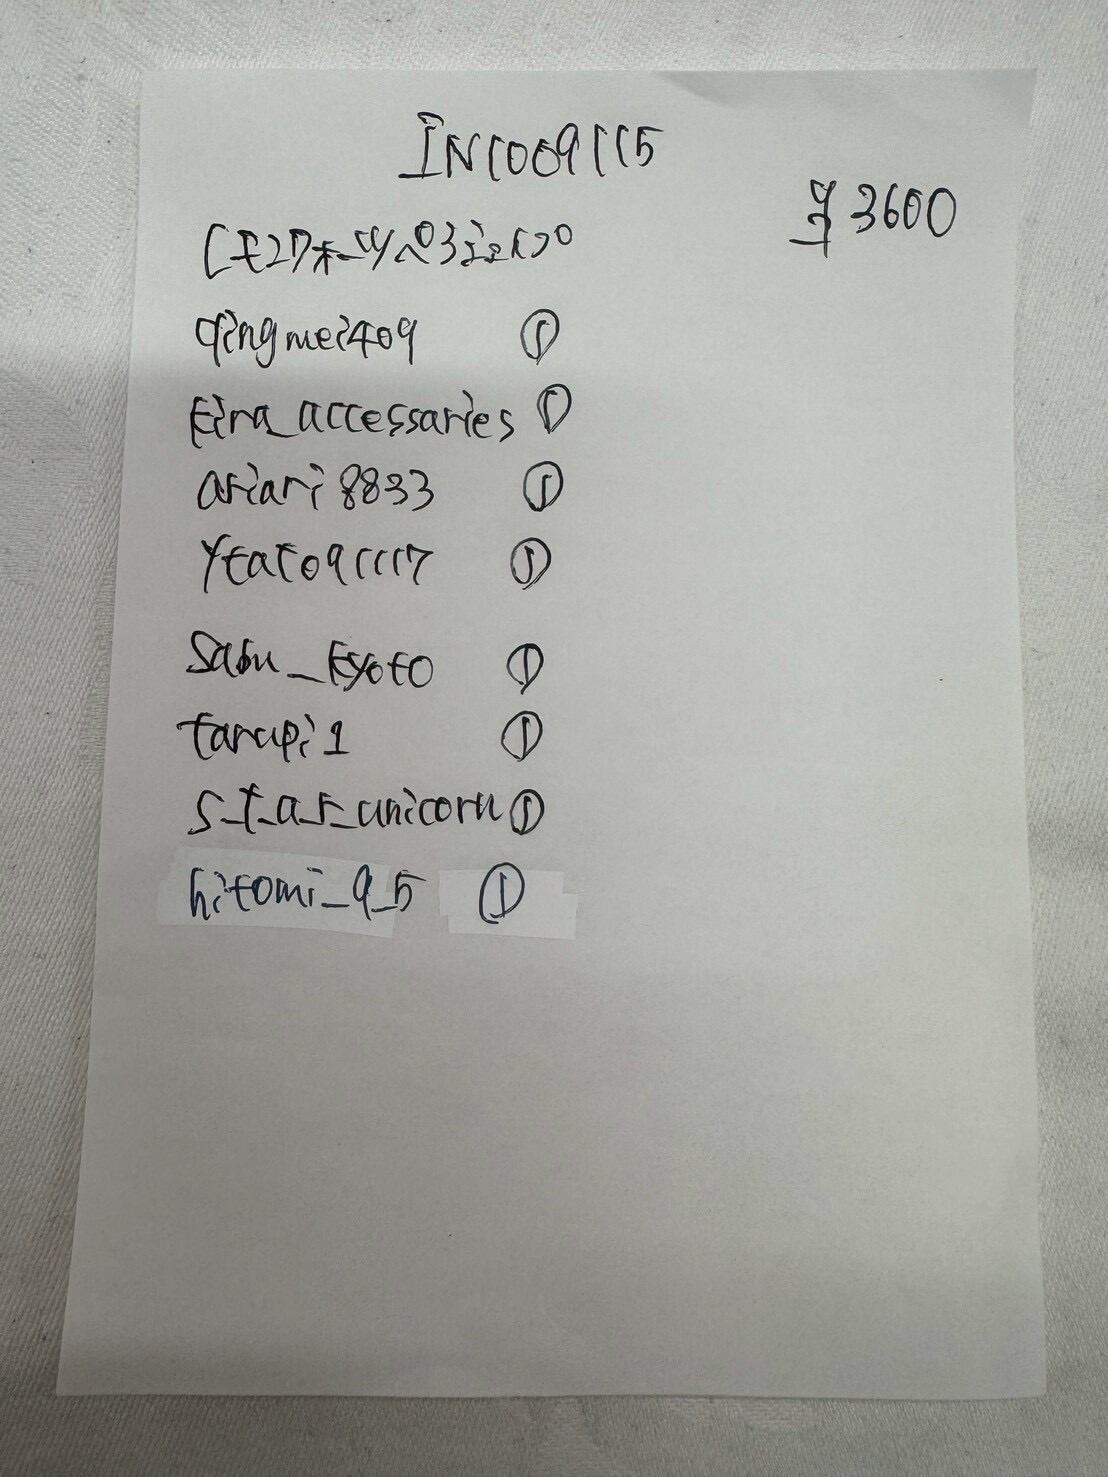 IN1009115
¥3600
qingmei409 ①
Eira_accessaries ①
ariari8833 ①
①
Sabu_kyoto ①
tarupi1 ①
s_t_a_r_unicorn ①
hitomi_9_5 ①